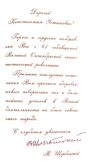 Дорогой
Константин Устинович!
Горячо и сердечно поздравляю
Вас с 61 годовщиной
Великой Октябрьской социалистической
революции.
Примите наилучшие пожелания
Вам крепкого здоровья,
новых
в Вашей
деятельности на благо
нашего народа.
С глубоким уважением
В. Щербицкий